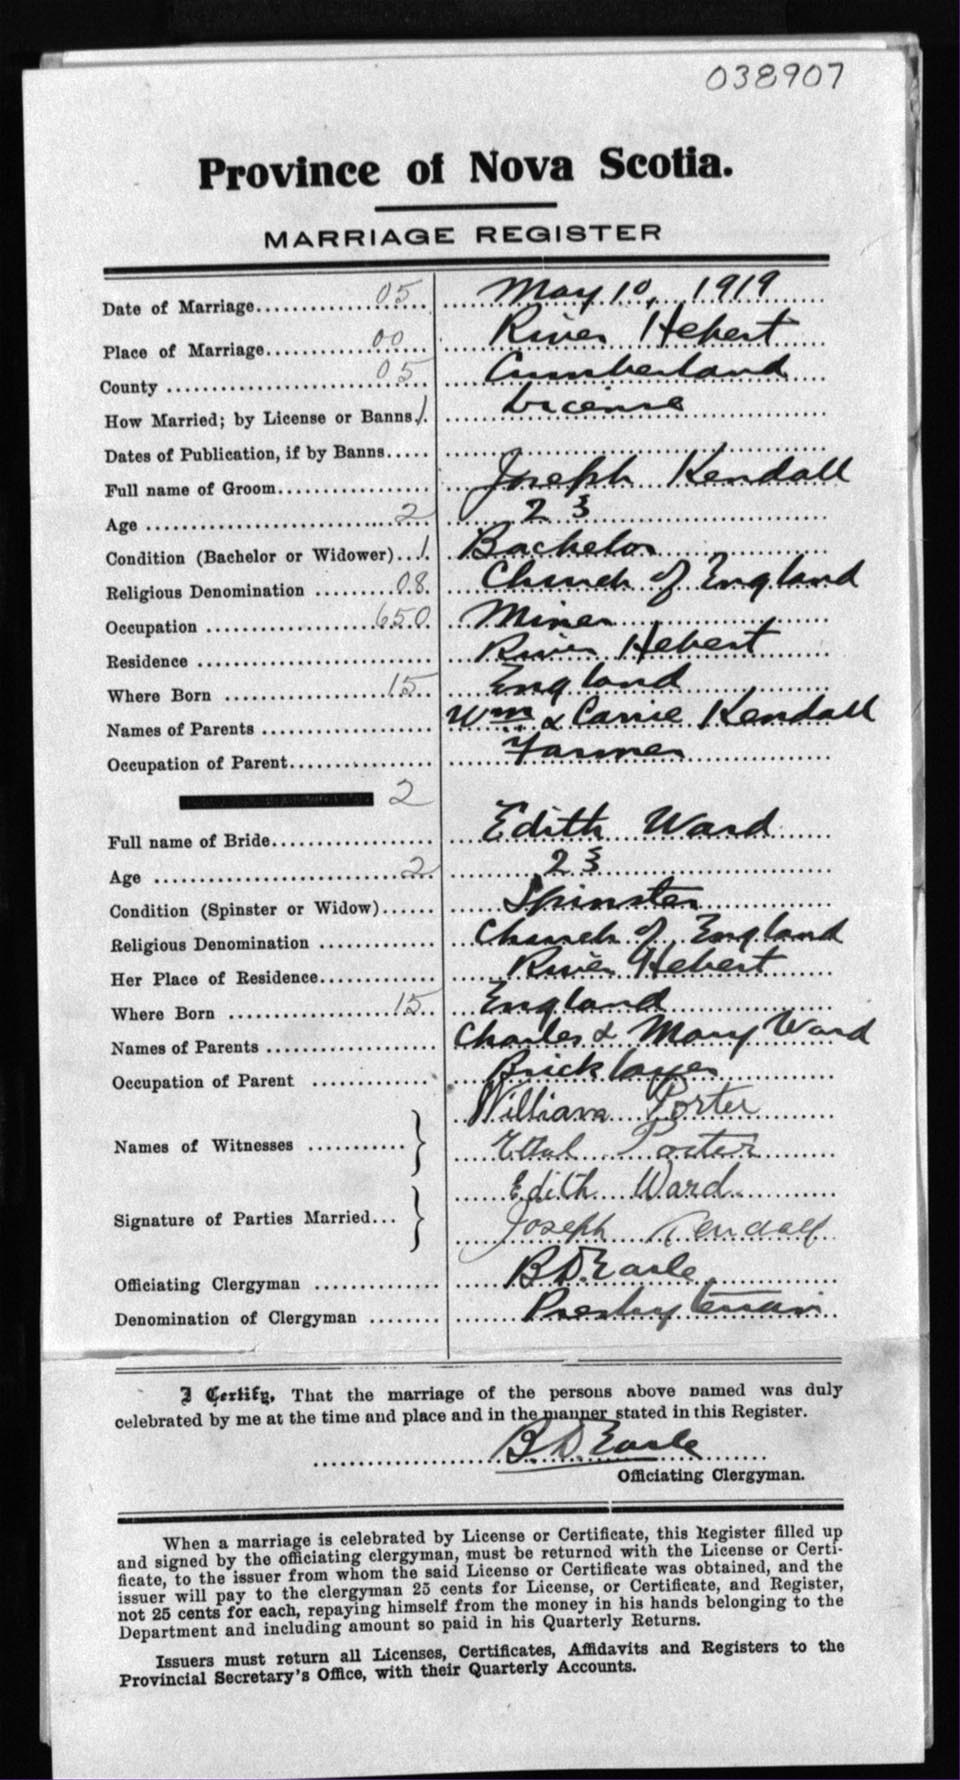 038907
Province of Nova Scotia.
MARRIAGE REGISTER
Date of Marriage 05 May 10, 1919
Place of Marriage 00 River Hebert
County 05 Cumberland
How Married; by License or Banns 1 License
Dates of Publication, if by Banns
Full name of Groom Joseph Kendall
Age 2 23
Condition (Bachelor or Widower) 1 Bachelor
Religious Denomination 08 Church of England
Occupation 650 Miner
Residence River Hebert
Where Born 15 England
Names of Parents Wm & Carrie Kendall
Occupation of Parent Farmer
2
Full name of Bride Edith Ward
Age 2 23
Condition (Spinster or Widow) Spinster
Religious Denomination Church of England
Her Place of Residence River Hebert
Where Born 15 England
Names of Parents Charles & Mary Ward
Occupation of Parent Bricklayer
William Porter
Names of Witnesses Ethel Porter
Edith Ward
Signature of Parties Married Joseph Kendall
Officiating Clergyman B D Earle
Denomination of Clergyman Presbyterian
I Certify, That the marriage of the persons above named was duly
celebrated by me at the time and place and in the manner stated in this Register.
B. D. Earle
Officiating Clergyman.
When a marriage is celebrated by License or Certificate, this Register filled up
and signed by the officiating clergyman, must be returned with the License or Certi-
ficate, to the issuer from whom the said License or Certificate was obtained, and the
issuer will pay to the clergyman 25 cents for License, or Certificate, and Register,
not 25 cents for each, repaying himself from the money in his hands belonging to the
Department and including amount so paid in his Quarterly Returns.
Issuers must return all Licenses, Certificates, Affidavits and Registers to the
Provincial Secretary's Office, with their Quarterly Accounts.